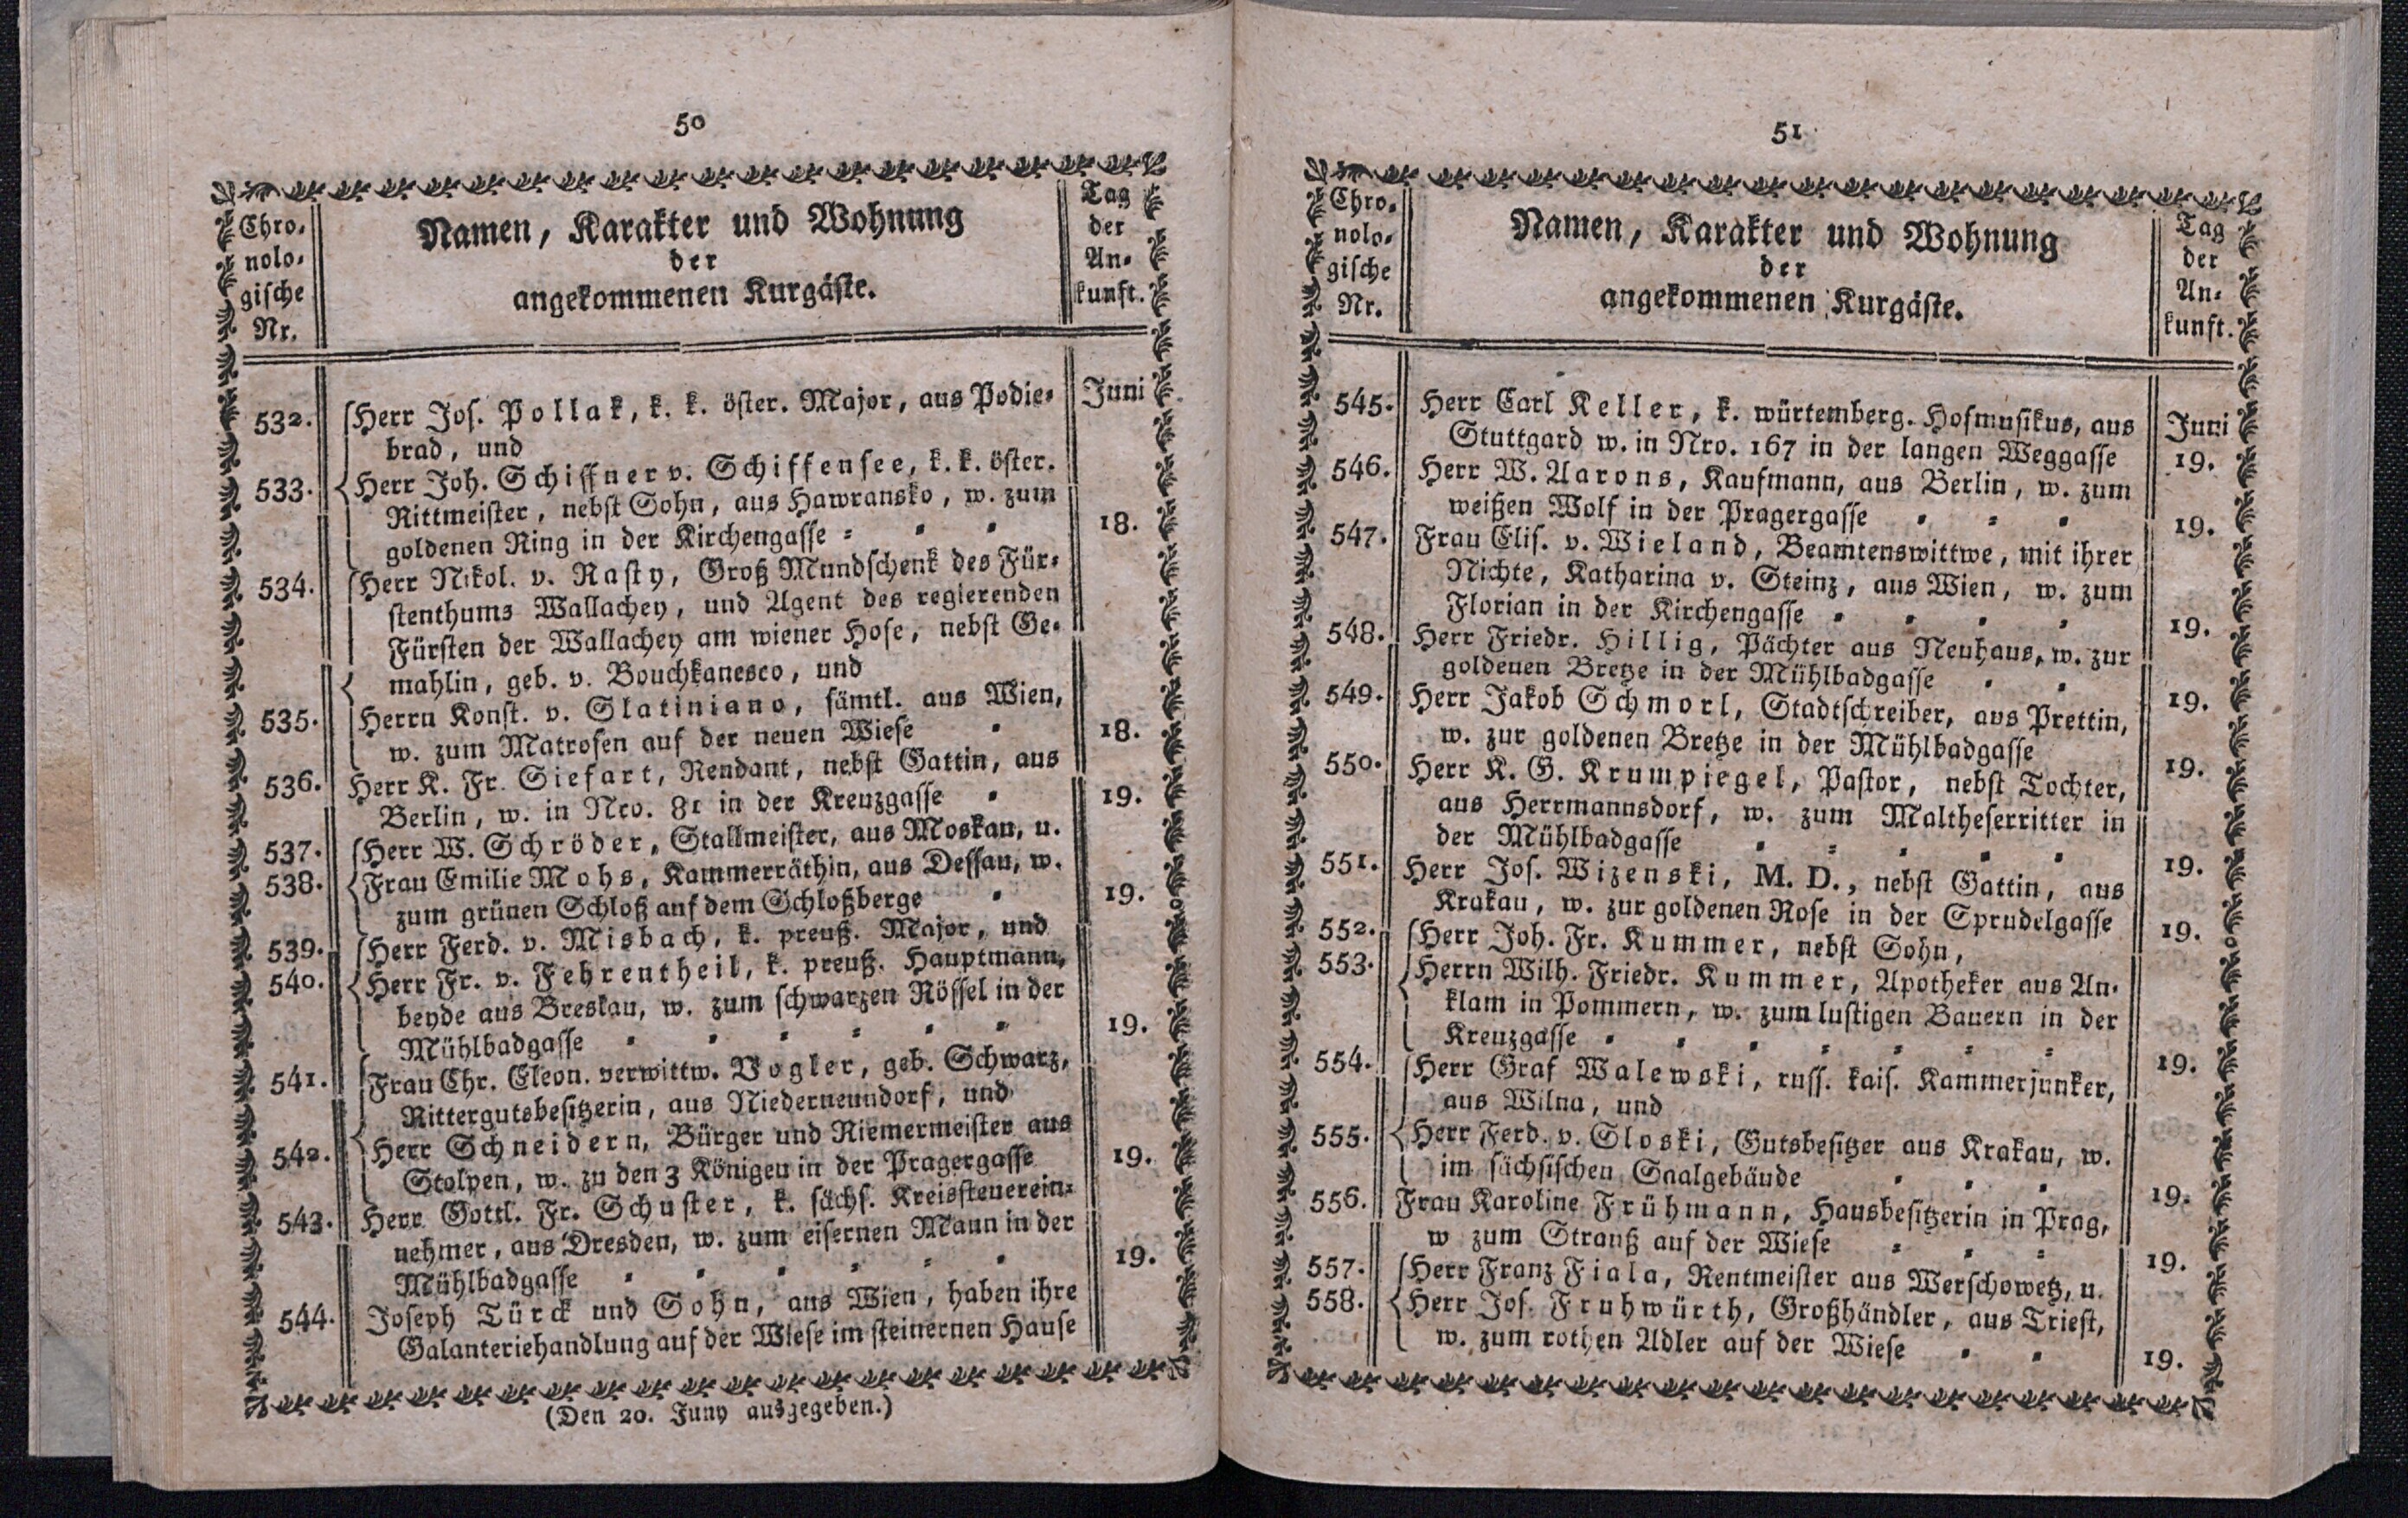 50
Chro-
nolo-
gische
Nr.
Namen, Karakter und Wohnung
der
angekommenen Kurgäste.
Tag
der
An-
kunft.
Juni
532. Herr Jos. Pollak, k. k. öster. Major, aus Podie-
brad, und
533. Herr Joh. Schiffner v. Schiffensee, k. k. öster.
Rittmeister, nebst Sohn, aus Hawransko, w. zum
goldenen Ring in der Kirchengasse 18.
534. Herr Nikol. v. Rasty, Groß Mundschenk des Für-
stenthums Wallachey, und Agent des regierenden
Fürsten der Wallachey am wiener Hofe, nebst Ge-
mahlin, geb. v. Bouchkanesco, und
535. Herrn Konst. v. Slatiniano, sämtl. aus Wien,
w. zum Matrosen auf der neuen Wiese 18.
536. Herr K. Fr. Siefart, Rendant, nebst Gattin, aus
Berlin, w. in Nro. 81 in der Kreuzgasse 19.
537. Herr W. Schröder, Stallmeister, aus Moskau, u.
538. Frau Emilie Mohs, Kammerräthin, aus Dessau, w.
zum grünen Schloß auf dem Schloßberge 19.
539. Herr Ferd. v. Misbach, k. preuß. Major, und
540. Herr Fr. v. Fehrentheil, k. preuß. Hauptmann,
beyde aus Breslau, w. zum schwarzen Rössel in der
Mühlbadgasse 19.
541. Frau Chr. Eleon. verwittw. Vogler, geb. Schwarz,
Rittergutsbesitzerin, aus Niederneundorf, und
542. Herr Schneidern, Bürger und Riemermeister aus
Stolpen, w. zu den 3 Königen in der Pragergasse 19.
543. Herr Gottl. Fr. Schuster, k. sächs. Kreissteuerein-
nehmer, aus Dresden, w. zum eisernen Mann in der
Mühlbadgasse 19.
544. Joseph Türck und Sohn, aus Wien, haben ihre
Galanteriehandlung auf der Wiese im steinernen Hause
(Den 20. Juny ausgegeben.)
51
Chro-
nolo-
gische
Nr.
Namen, Karakter und Wohnung
der
angekommenen Kurgäste.
Tag
der
An-
kunft.
Juni
545. Herr Carl Keller, k. würtemberg. Hofmusikus, aus
Stuttgard w. in Nro. 167 in der langen Weggasse 19.
546. Herr W. Aarons, Kaufmann, aus Berlin, w. zum
weißen Wolf in der Pragergasse 19.
547. Frau Elis. v. Wieland, Beamtenswittwe, mit ihrer
Nichte, Katharina v. Steinz, aus Wien, w. zum
Florian in der Kirchengasse 19.
548. Herr Friedr. Hillig, Pächter aus Neuhaus, w. zur
goldenen Bretze in der Mühlbadgasse 19.
549. Herr Jakob Schmorl, Stadtschreiber, aus Prettin,
w. zur goldenen Bretze in der Mühlbadgasse 19.
550. Herr K. G. Krumpiegel, Pastor, nebst Tochter,
aus Herrmannsdorf, w. zum Maltheserritter in
der Mühlbadgasse 19.
551. Herr Jos. Wizenski, M. D., nebst Gattin, aus
Krakau, w. zur goldenen Rose in der Sprudelgasse 19.
552. Herr Joh. Fr. Kummer, nebst Sohn,
553. Herrn Wilh. Friedr. Kummer, Apotheker aus An-
klam in Pommern, w. zum lustigen Bauern in der
Kreuzgasse 19.
554. Herr Graf Walewski, russ. kais. Kammerjunker,
aus Wilna, und
555. Herr Ferd. v. Sloski, Gutsbesitzer aus Krakau, w.
im sächsischen Saalgebäude 19.
556. Frau Karoline Frühmann, Hausbesitzerin in Prag,
w zum Strauß auf der Wiese 19.
557. Herr Franz Fiala, Rentmeister aus Werschowetz, u.
558. Herr Jos. Fruhwürth, Großhändler, aus Triest,
w. zum rothen Adler auf der Wiese 19.